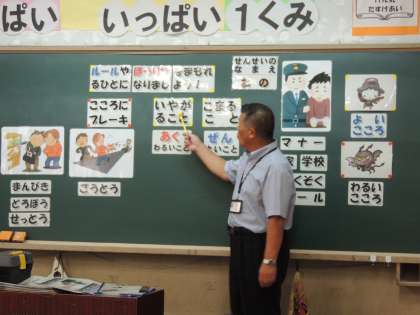 ぱい いっぱい 1くみ
たすけあい
ルールや
まもれ
るひとに
なりましょう!
せんせいの
なまえ
こころに
ブレーキ
いやが
ること
こまる
こと
あく
わるいこと
ぜん
いこと
マナー
学校
ぞく
ール
よい
こころ
わるい
こころ
まんびき
どろぼう
せっとう
こうとう